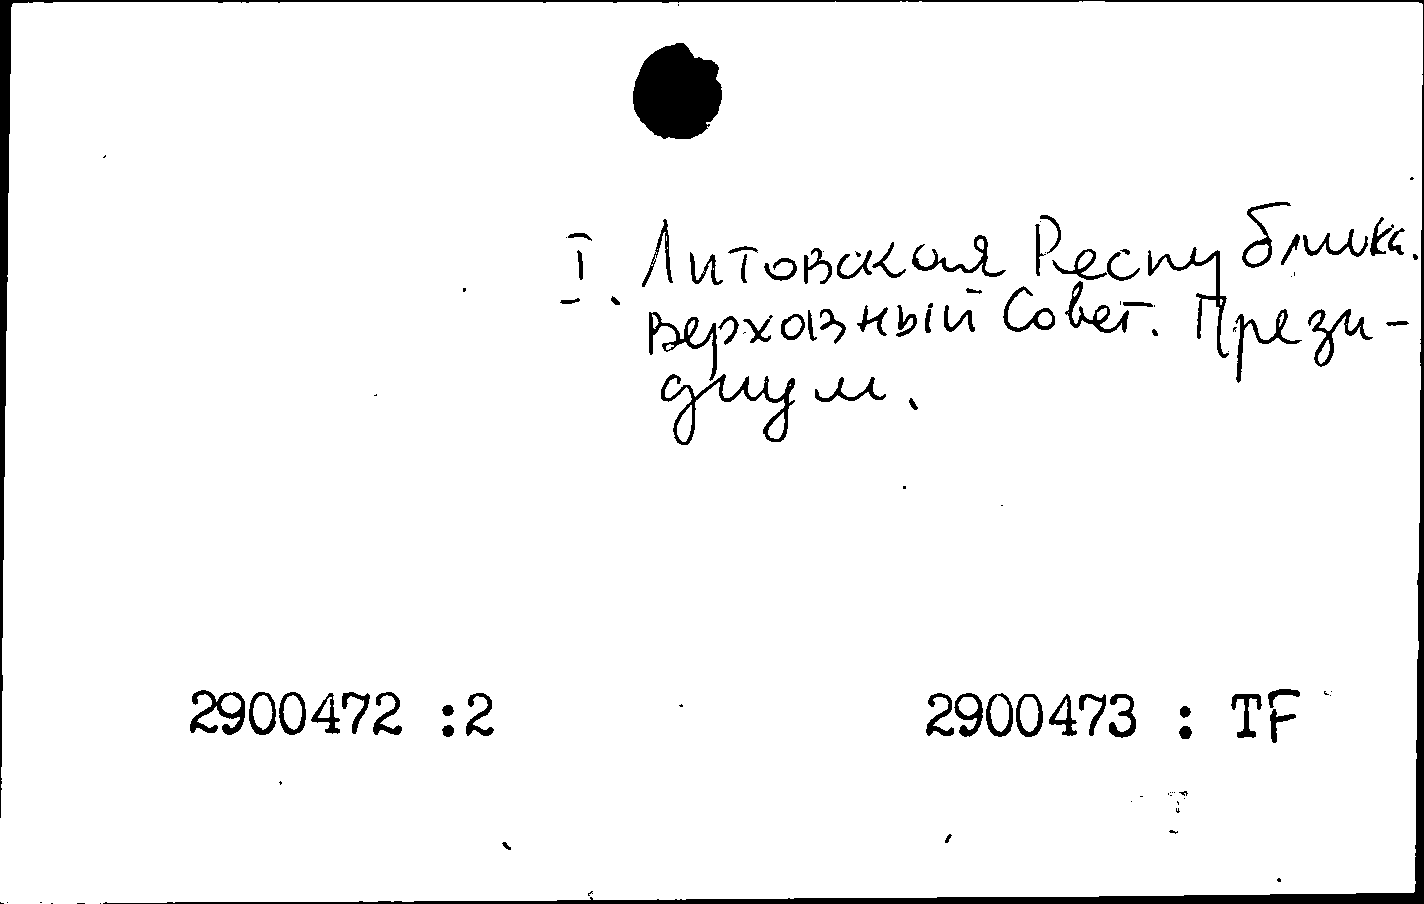 I. Литовская Республика.
Верховный Совет. Прези-
диум.
2900472 :2 2900473 : TF